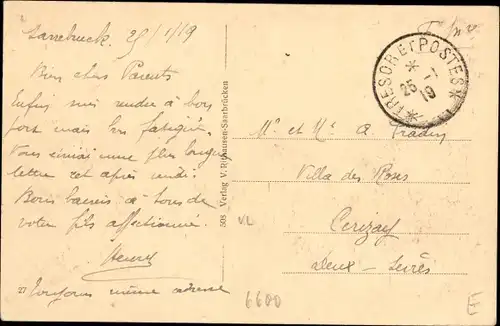 Sarrebruck, 25/1/19
Bien chers Parents
Enfin me rendu à bon
port mais bien fatigué.
Vous écrirai une plus longue
lettre cet après midi.
Bons baisers à tous de
votre fils affectionné.
Henry
27 Toujours même adresse
508 Verlag V. Saarbrücken
F. M.
TRESOR ET POSTES
25 - 1
19
Mr et Me A.
Villa des Roses
Cerizay
Deux-Sèvres
VL
6600
E